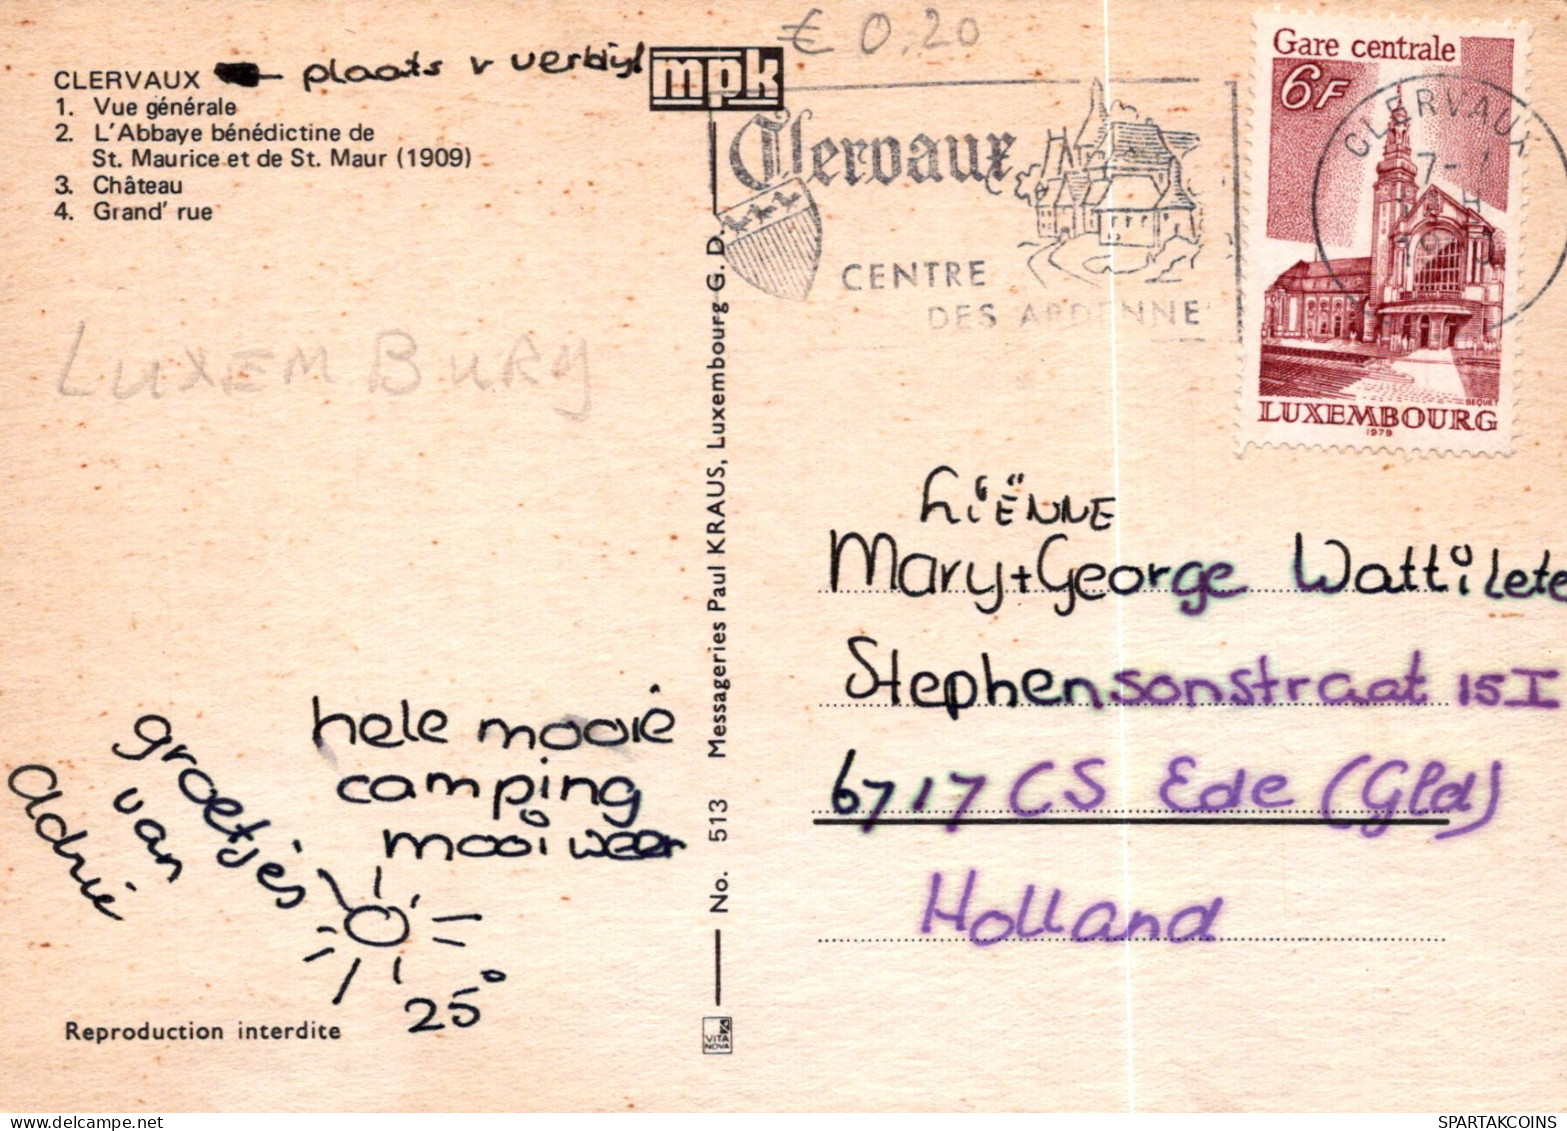 € 0.20
CLERVAUX
plaats v verblijf
1. Vue générale
2. L'Abbaye bénédictine de
St. Maurice et de St. Maur (1909)
3. Château
4. Grand' rue
mpk
Clervaux
CENTRE
DES ARDENNE
Gare centrale
6F
CLERVAUX
BEQUET
LUXEMBOURG
1979
LUXEMBURG
No. 513 Messageries Paul KRAUS, Luxembourg G. D.
LiËNNE
Mary+George Wattilete
Stephensonstraat 15 I
6717 CS Ede (Gld)
Holland
hele mooie
camping
mooi weer
25°
groetjes
van
Adrie
Reproduction interdite
VITA
NOVA
SPARTAKCOINS